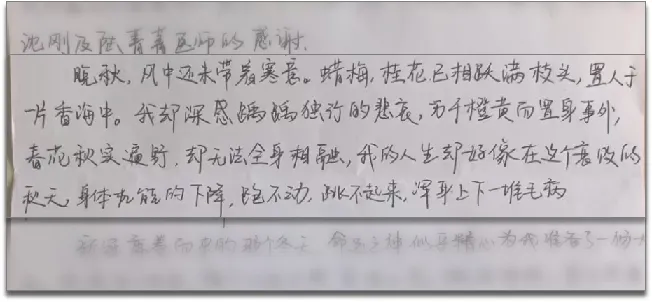 沈刚及陆青青医师的感谢.
晚秋,风中还未带着寒意。蜡梅,桂花已相跃满枝头,置人于
一片香海中。我却深感踽踽独行的悲哀,万千橙黄而置身事外,
春花秋实遍野,却无法全身相融,我的人生却好像在这个衰败的
秋天,身体机能的下降,跑不动,跳不起来,浑身上下一堆毛病
的那个冬天
为我准备了一场